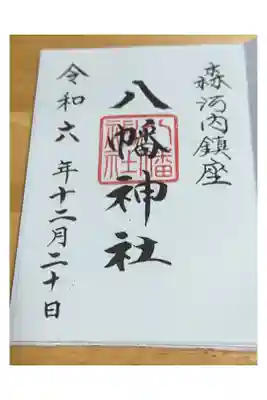 森河内鎮座
八幡神社
令和六年十二月二十日